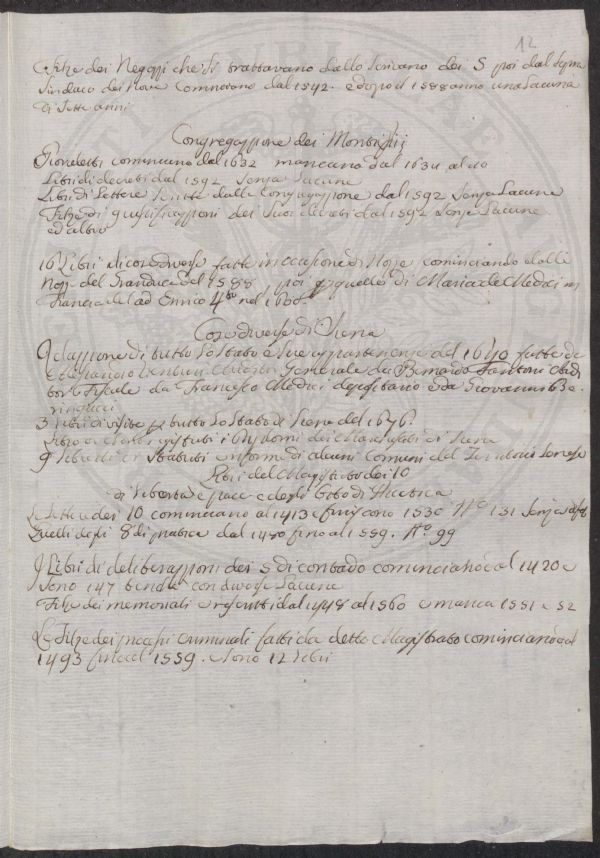 12
Filze dei Negozi che si trattavano dallo Scrivano dei 5 poi dal Sopra
Sindaco dei Nove Cominciano dal 1542. e dopo il 1588 anno una Lacuna
di sette anni
Congregazione dei Monti
Giornaletti cominciano dal 1632 mancano dal 1634 al 40
Libri di decreti dal 1592 Senza Lacune
Libri di Lettere scritte dalla Congregazione dal 1592 Senza Lacune
Filze di giustificazioni dei suoi decreti dal 1592 Senza Lacune
ed altro
16 Libri di cose diverse fatte in occasione di Nozze cominciando dalle
Nozze del Granduca del 1588 poi quelle di Maria de Medici in
Francia del ad Enrico 4to nel 1600
Cose diverse di Siena
Relazione di tutto lo Stato e sue appartenenze del 1640 fatte da
Generale da Bernardo Fantoni
Fiscale da Francesco Medici depositario e da Giovanni Be
ringucci
3 Libri di visite per tutto lo Stato di Siena del 1676.
dei di Siena
9 Libretti di Statuti e riforme di alcuni Comuni del Territorio Senese
Libri del Magistrato dei 10
di Libertà e pace e degli Otto di Pratica
Le Lettere dei 10 cominciano al 1413 e finiscono 1530 No 131 Senza
Quelli degli 8 di pratica dal 1480 fino al 1559. No. 99
I Libri di deliberazioni dei 5 di contado cominciano dal 1420 e
sono 147 con diverse Lacune
Filze dei memoriali e rescritti dal 1448 al 1560 e manca 1551 e 52
Le Filze dei processi criminali fatti da detto Magistrato cominciano dal
1493 fino al 1559. e sono 12 Libri